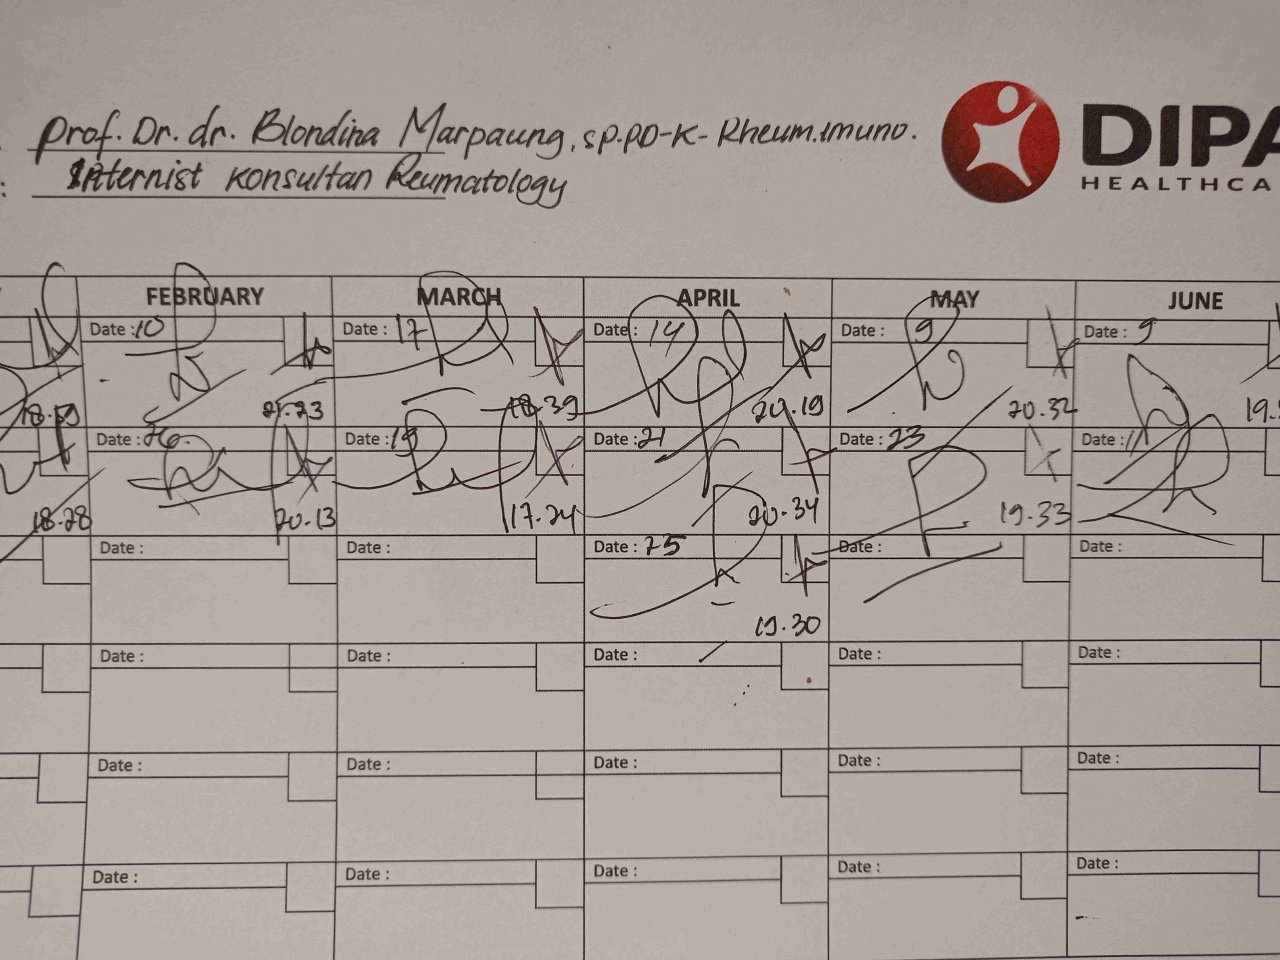 Prof. Dr. dr. Blondina Marpaung, SP.PD-K-Rheum.imuno.
: Internist Konsultan Reumatology
DIPA
HEALTHCA
FEBRUARY MARCH APRIL MAY JUNE
Date : 10 Date : 17 Date : 14 Date : 9 Date : 9
21.23 18.39 20.19 20.32 19.
Date : 26. Date : 19 Date : 21 Date : 23 Date : 11
18.28 20.13 17.24 20.34 19.33
Date : Date : Date : 25 Date : Date :
19.30
Date : Date : Date : Date : Date :
Date : Date : Date : Date : Date :
Date : Date : Date : Date : Date :